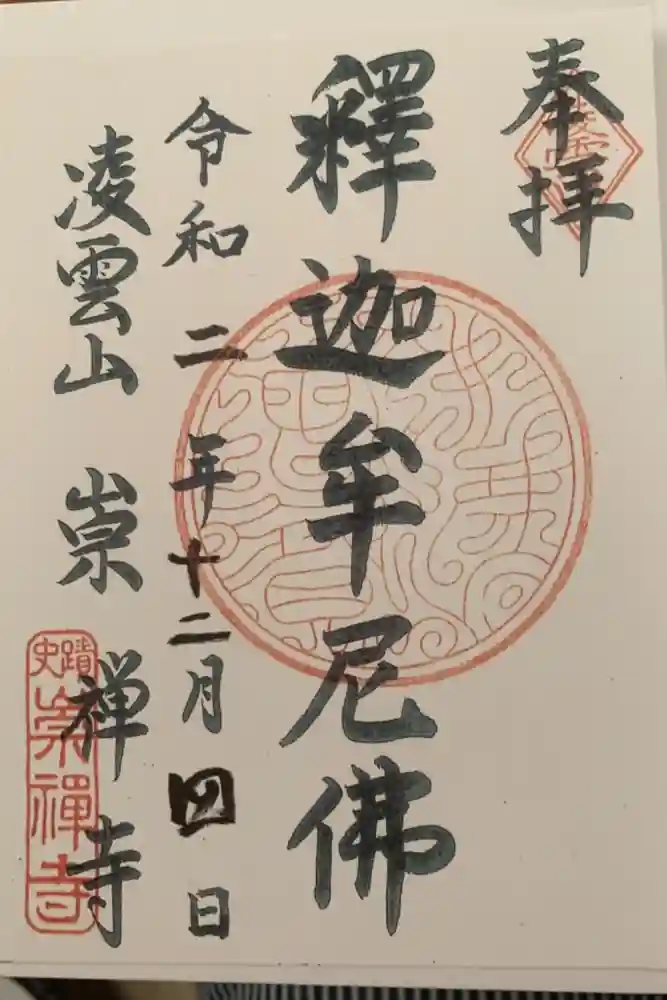 奉拝
釋迦牟尼佛
令和二年十二月四日
凌雲山 崇禅寺
史蹟
崇禪寺